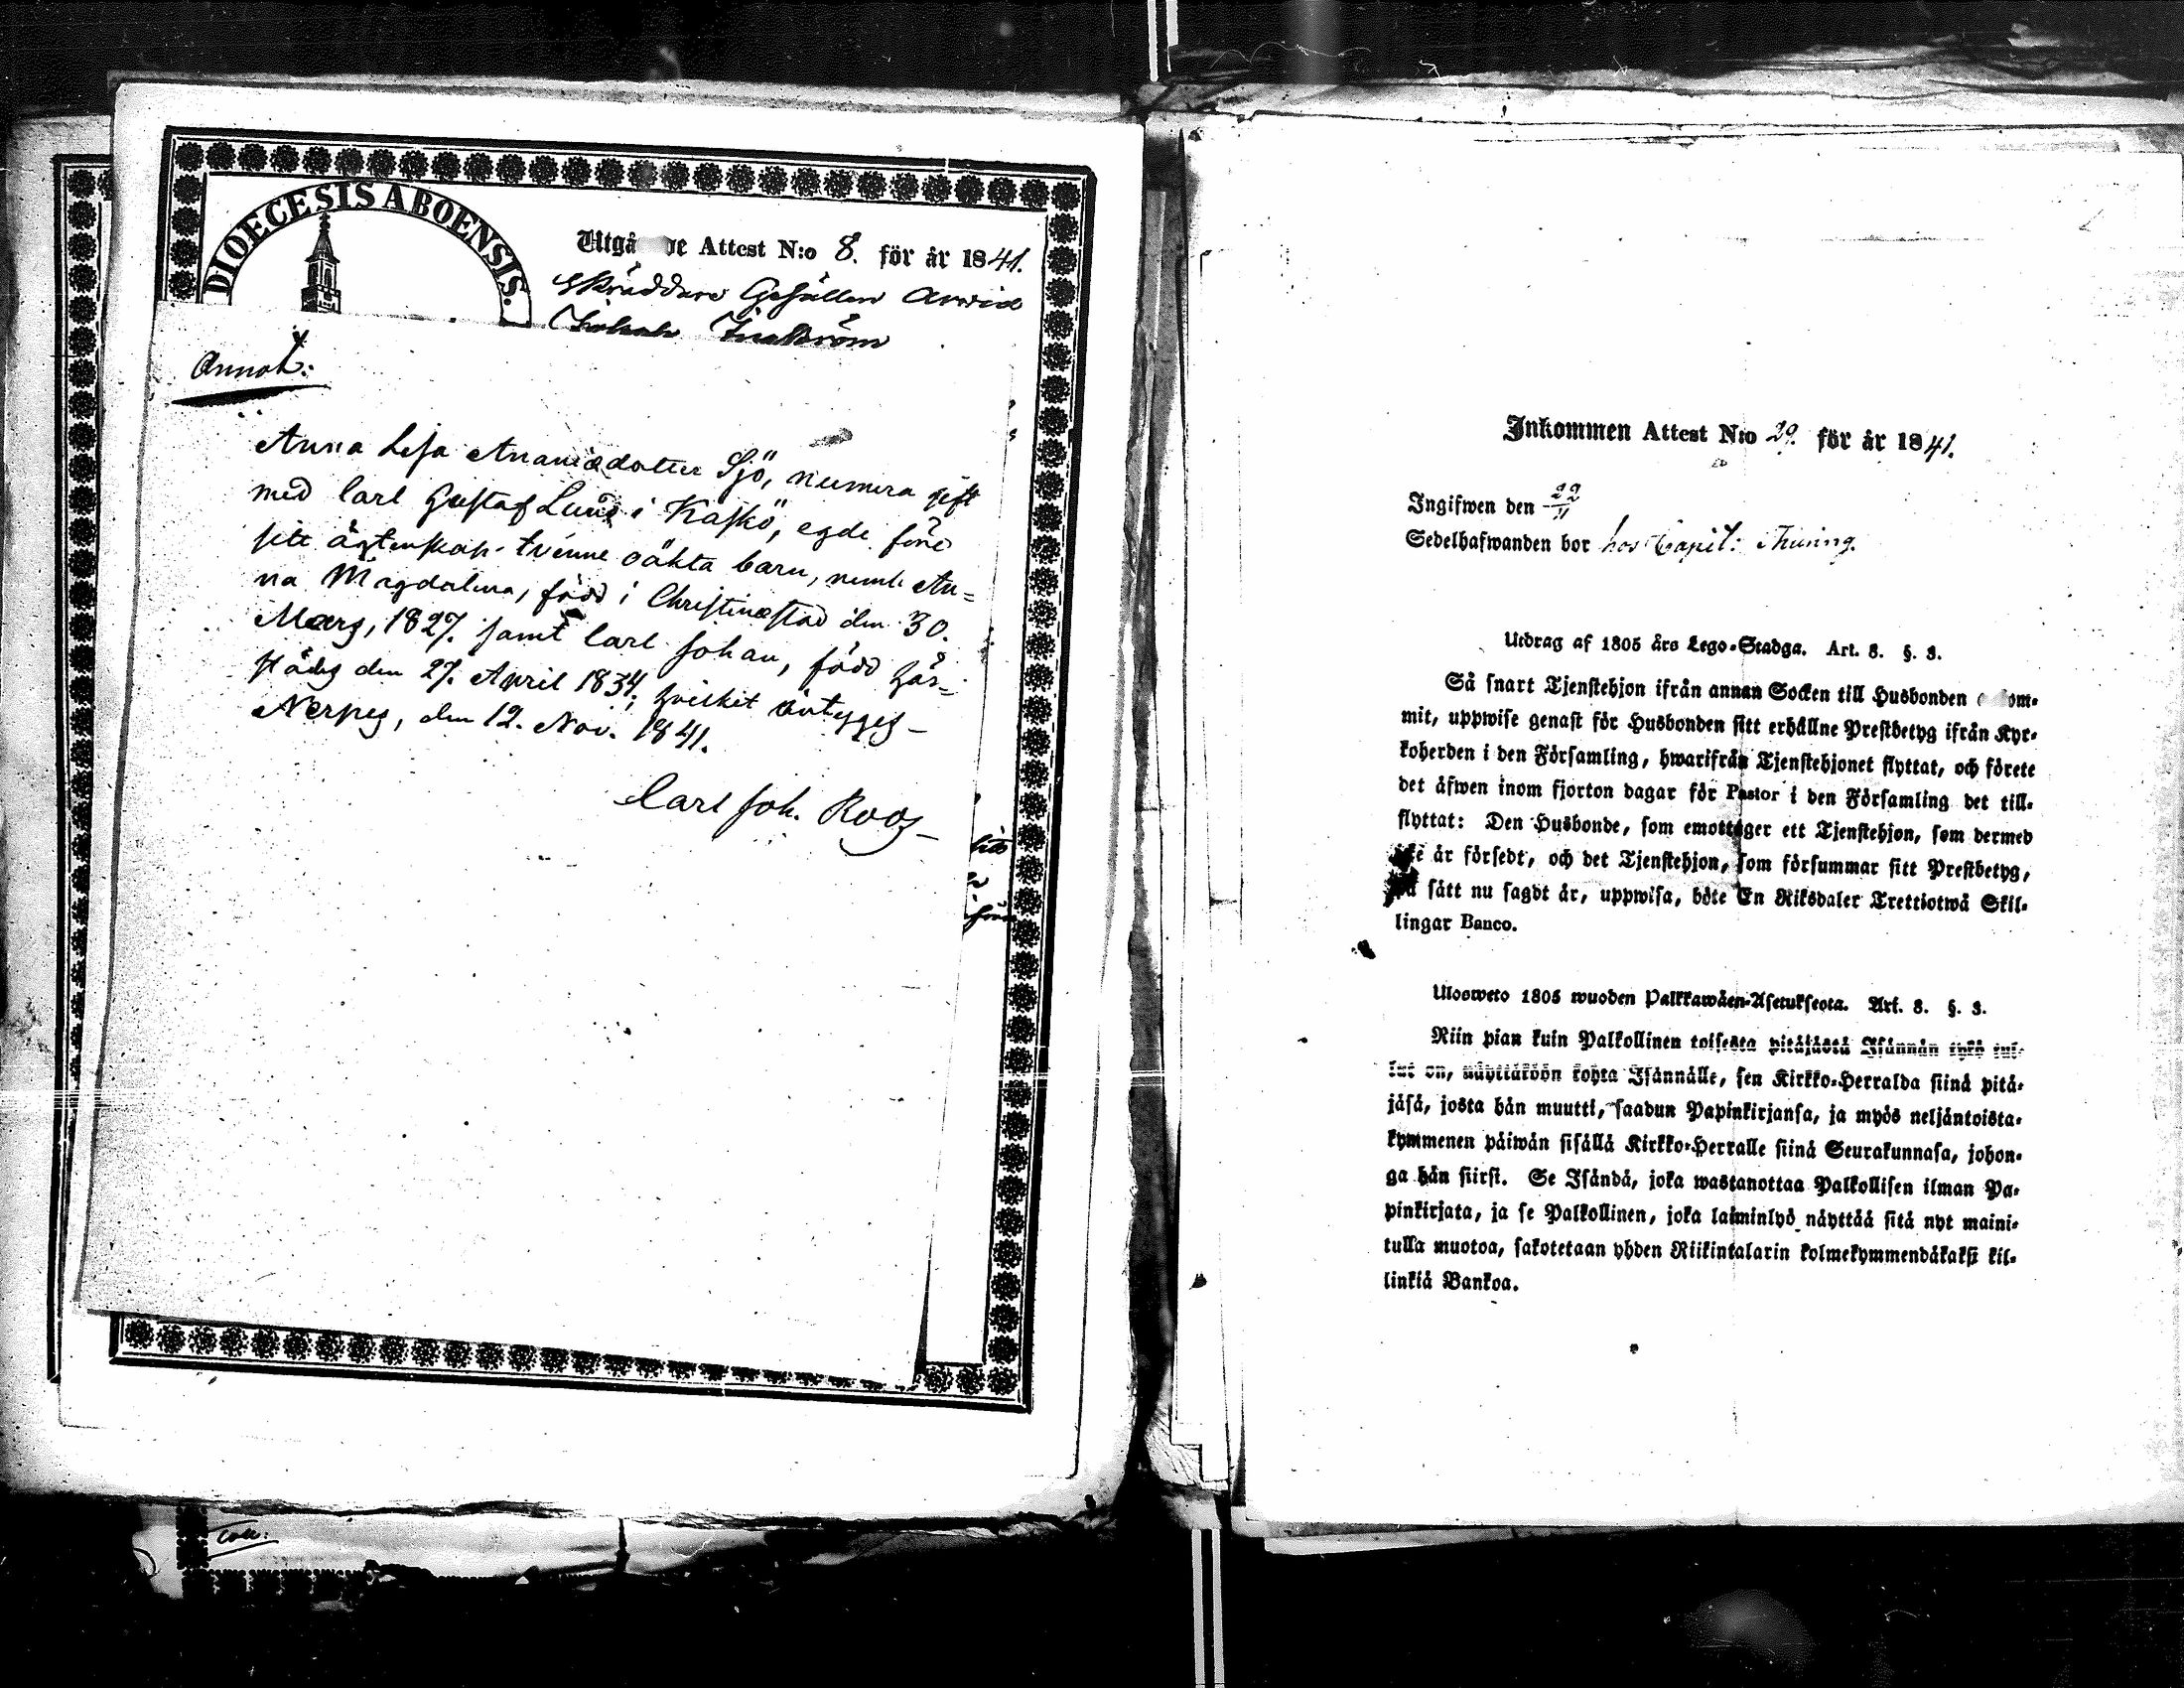 DIOECESIS ABOENSIS.
Utgå de Attest N:o 8. för år 1841.
Skräddare Gesällen Arvid
Annot:
Anna Lisa Ananiædotter Sjö, numera gift
med Carl Gustaf Lund i Kaskö, egde före
sitt ägtenskap tvenne oäkta barn, neml. An=
na Magdalena, född i Christinæstad den 30.
Mars, 1827. samt Carl Johan, född här=
städes den 27. April 1834; hvilket
Nerpes, den 12. Nov. 1841.
Carl Joh. Roos
Inkommen Attest N:o 29. för år 1841.
Ingifwen den 22/11
Sedelhafwanden bor hos Capit: Thuring.
Utdrag af 1805 års Lego-Stadga. Art. 8. §. 3.
Så snart Tjenstehjon ifrån annan Socken till Husbonden om-
mit, uppwise genast för Husbonden sitt erhållne Prestbetyg ifrån Kyr-
koherden i den Församling, hwarifrån Tjenstehjonet flyttat, och förete
det äfwen inom fjorton dagar för Pastor i den Församling det till-
flyttat: Den Husbonde, som emottager ett Tjenstehjon, som dermed
är försedt, och det Tjenstehjon, som försummar sitt Prestbetyg,
på sätt nu sagdt är, uppwisa, böte En Riksdaler Trettiotwå Skil-
lingar Banco.
Ulosweto 1805 wuoden Palkkawäen-Asetuksesta. Art. 8. §. 3.
Niin pian kuin Palkollinen toisesta pitäjästä Isännän tykö tul-
lut on, näyttäköön kohta Isännälle, sen Kirkko-Herralda siinä pitä-
jäsä, josta hän muutti, saadun Papinkirjansa, ja myös neljäntoista-
kymmenen päiwän sisällä Kirkko-Herralle siinä Seurakunnasa, johon-
ga hän siirsi. Se Isändä, joka wastanottaa Palkollisen ilman Pa-
pinkirjata, ja se Palkollinen, joka laiminlyö näyttää sitä nyt maini-
tulla muotoa, sakotetaan yhden Riikintalarin kolmekymmendäkaksi kil-
linkiä Bankoa.